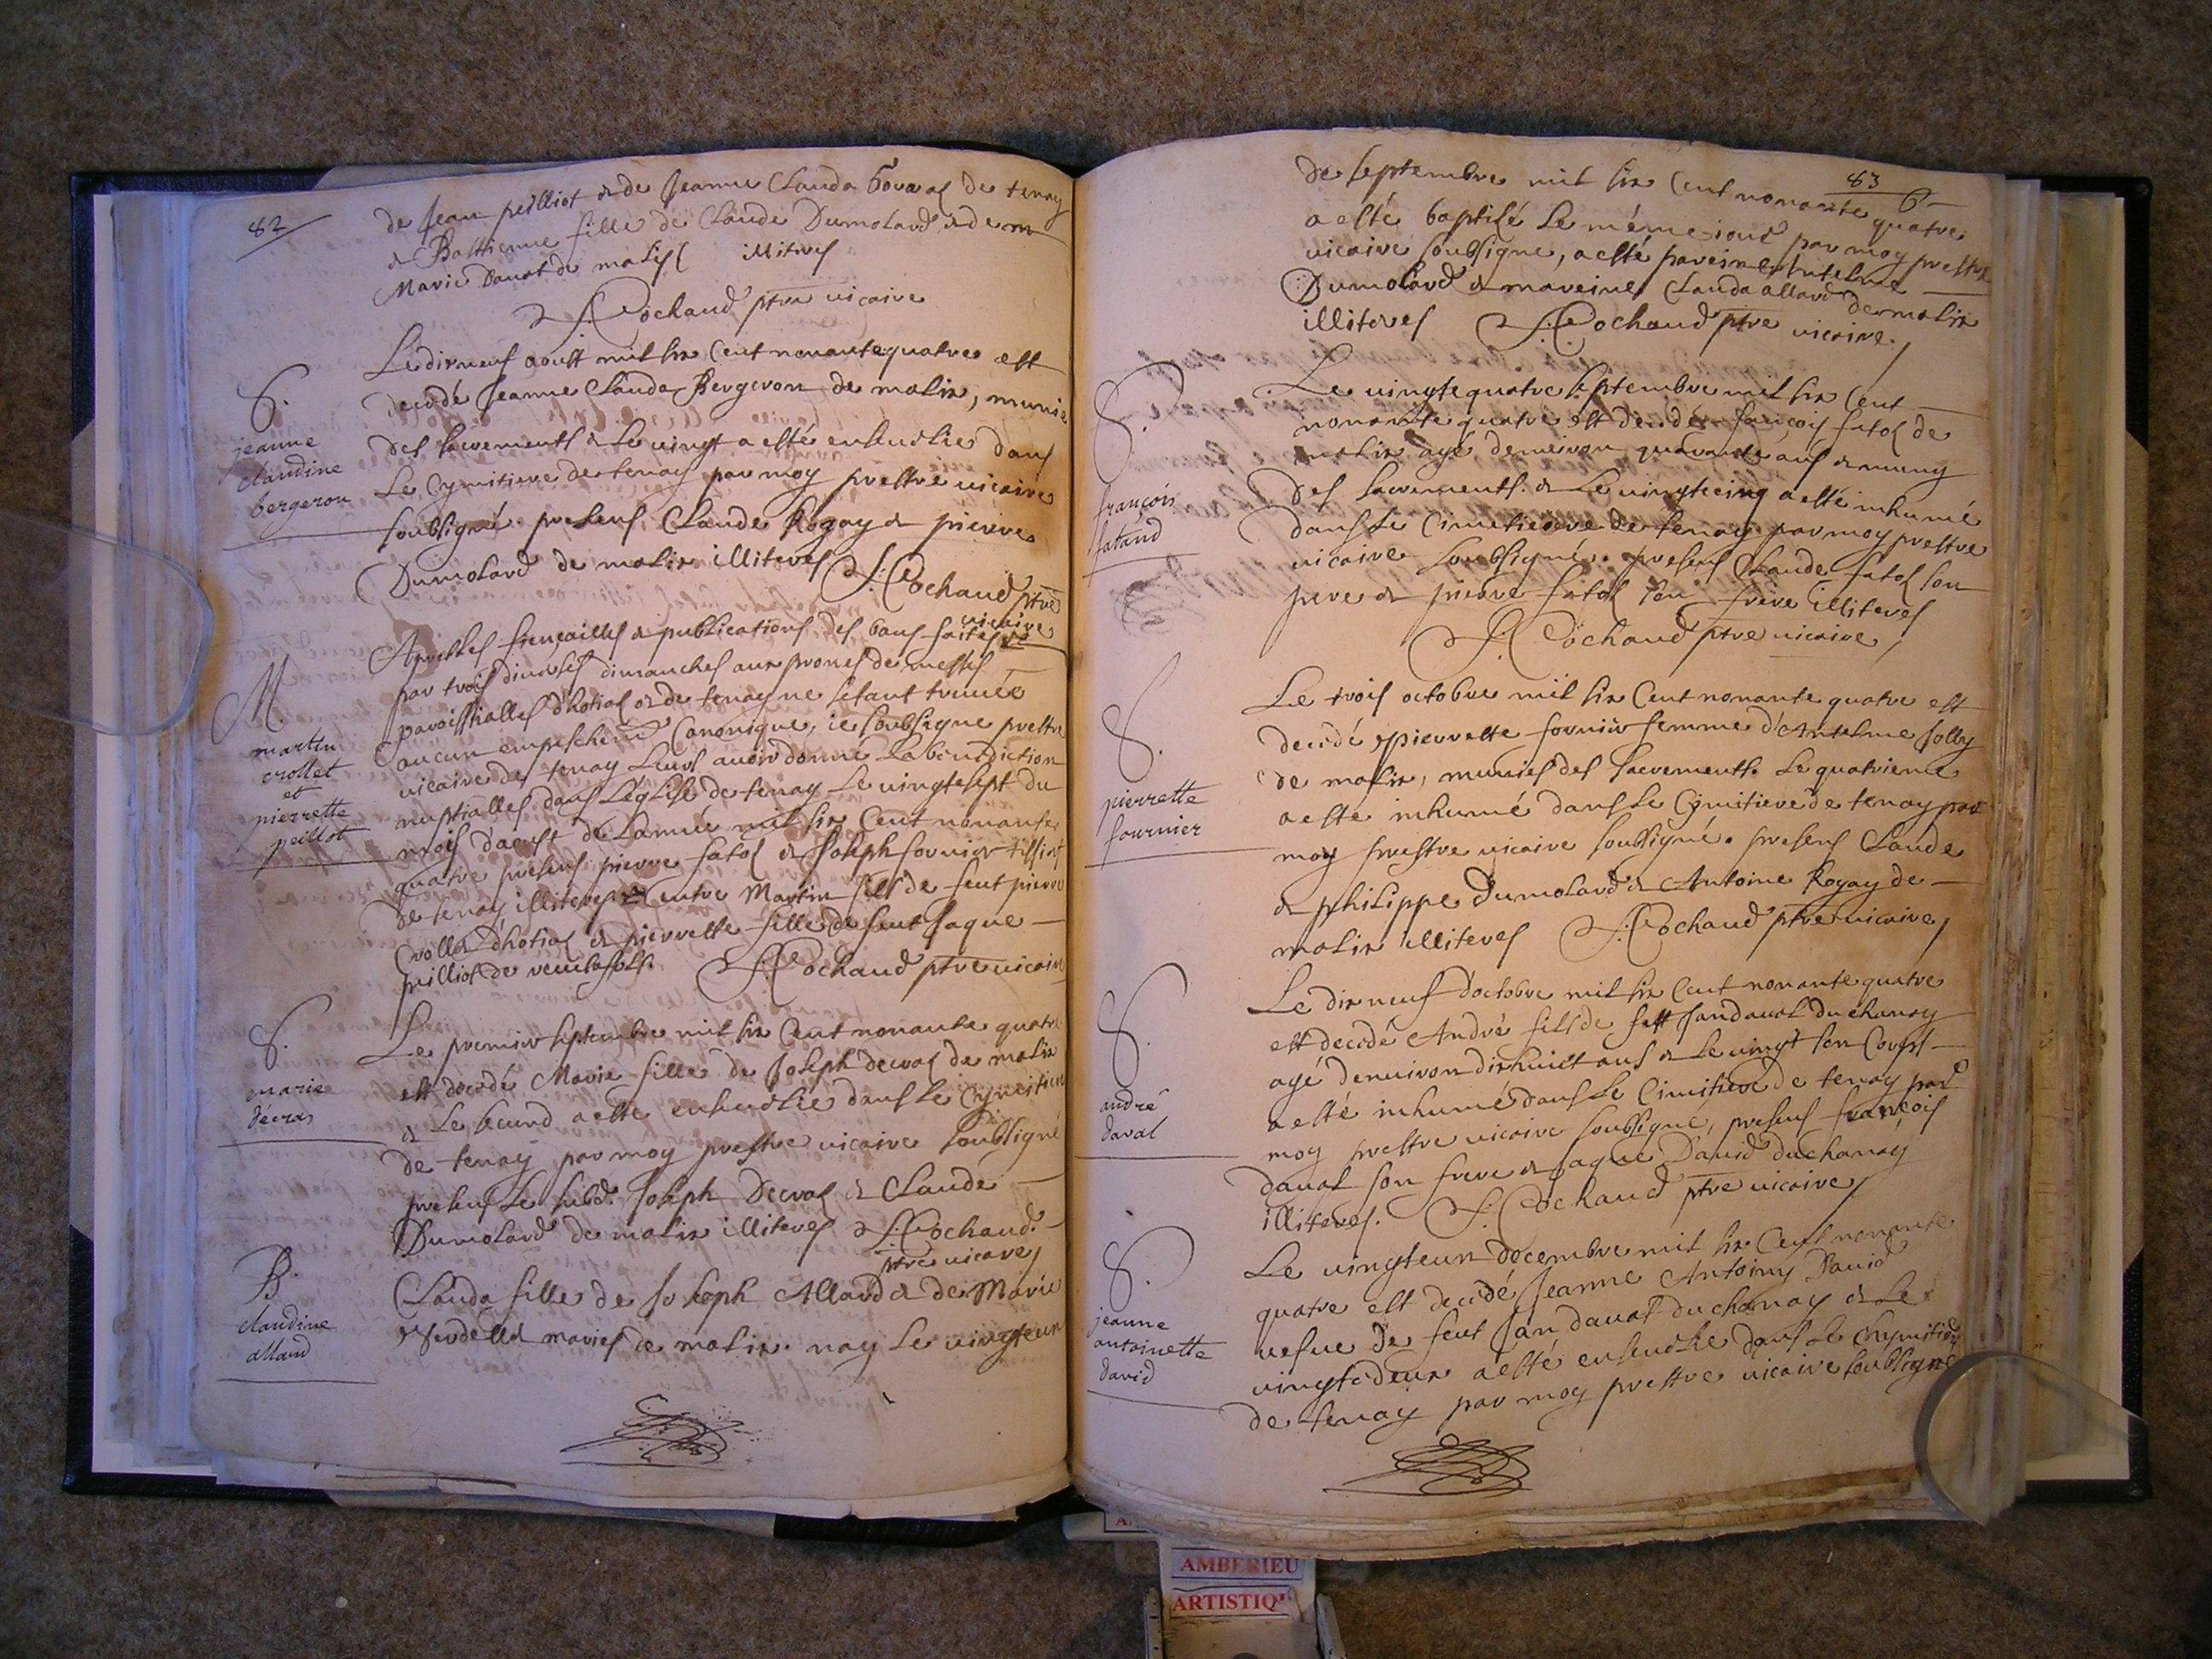 82
de Jean peilliot & de Jeanne Clauda de tenay
& Bastienne fille de Claude Dumolard & de
Marie Davat de malix illiteres
J. Cochaud ptre vicaire
S.
jeanne
claudine
bergeron
Le dixneuf aoust mil six Cent nonante quatre est
decedé Jeanne Clauda Bergeron de malix, munie
des sacrements & le vingt a esté ensevelie dans
Le Cymitiere de tenay par moy prestre vicaire
soubsigné. presens Claude Rogay & pierre
Dumolard de malix illiteres J. Cochaud ptre
vicaire
M.
martin
crollet
et
pierrette
peillot
Apres les fiençailles & publications des bans faites
par trois diverses dimanches aux prones de messes
paroissialles & de tenay ne sétant trouvée
aucun empeschemt Canonique, ie soubsigne prestre
vicaire de tenay Leurs avoir donné La benediction
nuptialles dans Léglise de tenay Le vingtesept du
mois daoust de Lannée mil six Cent nonante
quatre presens pierre fatol & Joseph fornier
de tenay illiteres entre Martin fils de feut pierre
& pierrette fille de feut Jaque
peilliot de J. Cochaud ptre vicaire
S.
marie
décras
Le premier septembre mil six Cent nonante quatre
est decedé Marie fille de Joseph decral de malix
& Le second a esté ensevelie dans Le Cymitiere
de tenay par moy prestre vicaire soubsigné
presens Le subd. Joseph Decral & Claude
Dumolard de malix illiteres J. Cochaud
ptre vicaire
B.
claudine
allard
Clauda fille de Joseph Allard & de Marie
maries de malix. nay Le vingteun
83
de septembre mil six Cent nonante quatre
a esté baptisé Le méme iour par moy prestre
vicaire soubsigne, a esté pareine Antelme
Dumolard & mareine Clauda allard de malix
illiteres J. Cochaud ptre vicaire
S.
françois
fatand
Le vingtequatre septembre mil six Cent
nonante quatre est decedé françois fatol de
malix agé denviron quarante ans & muny
des sacrements. & Le vingtecinq a esté inhumé
dans Le Cimetiere de tenay par moy prestre
vicaire soubsigné. presens Claude fatol son
pere & pierre fatol son frere illiteres
J. Cochaud ptre vicaire
S.
pierrette
fournier
Le trois octobre mil six Cent nonante quatre est
decedé pierrette fornier femme d'Antelme Jolly
de malix, munies des sacrements. Le quatrieme
a esté inhumé dans Le Cymitiere de tenay par
moy prestre vicaire soubsigné. presens Claude
& philippe Dumolard & Antoine Rogay de
malix illiteres J. Cochaud ptre vicaire
S.
andré
daval
Le dixneuf doctobre mil six Cent nonante quatre
est decedé André fils de Jan davat du chanay
agé denviron dixhuict ans & Le vingt son Corps
a esté inhumé dans Le Cimitiere de tenay par
moy prestre vicaire soubsigné, presens françois
davat son frere & Jaque David du chanay
illiteres. J. Cochaud ptre vicaire
S.
jeanne
antoinette
david
Le vingteun decembre mil six Cent nonante
quatre est decedé Jeanne Antoiny David
vefve de feut Jan davat du chanay & Le
vingtedeux a esté ensevelie dans Le Chymitiere
de tenay par moy prestre vicaire soubsigné
AMBERIEU
ARTISTIQ